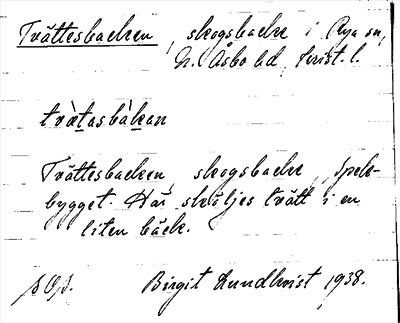 Tvättesbacken, skogsbacke i Rya sn,
N. Åsbo hd, Krist. l.
tvätasbàkan
Tvättesbacken skogsbacke, Spek-
bygget. Här sköljes tvätt i en
liten bäck.
Birgit Lundkvist 1938.